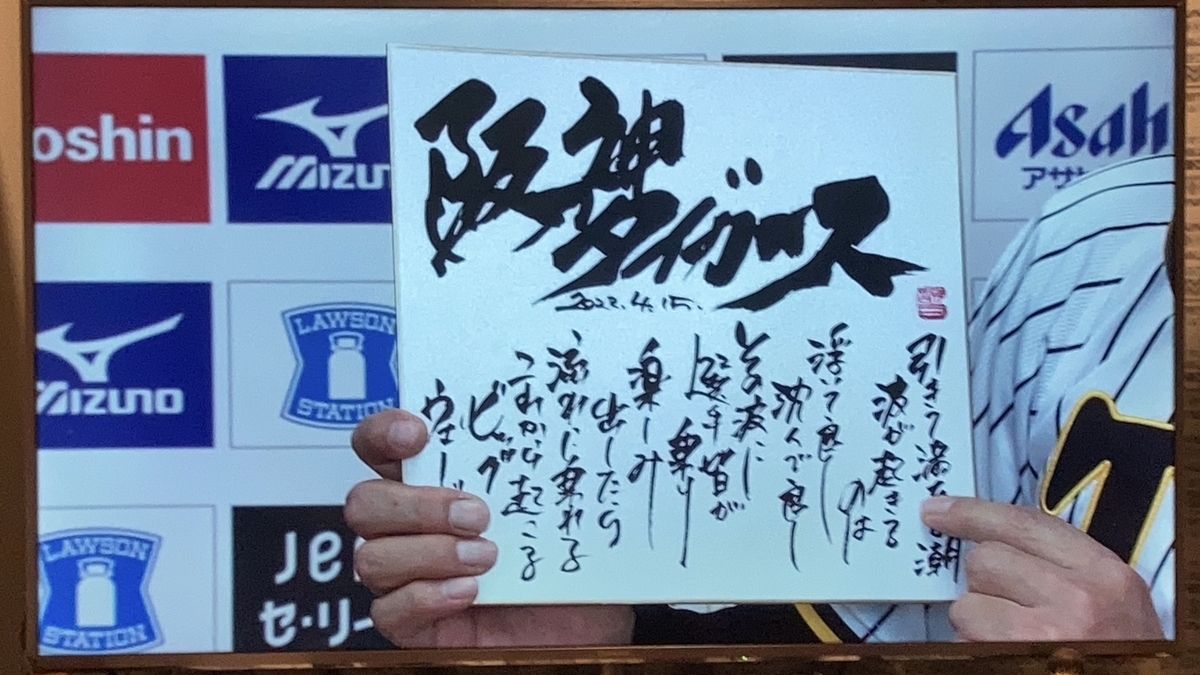 oshin
MIZUNO
Asahi
アサ
阪神
タイガース
2022.4.15.
引き 満ち 潮
波が起きる
のは
浮いて良し
沈んで良し
その波に
選手皆が
乗り
楽しみ
出したら
流れに乗れる
これから起こる
ビッグ
ウェー
MIZUNO
LAWSON
STATION
LAWSON
STATION
Je
セ・リー